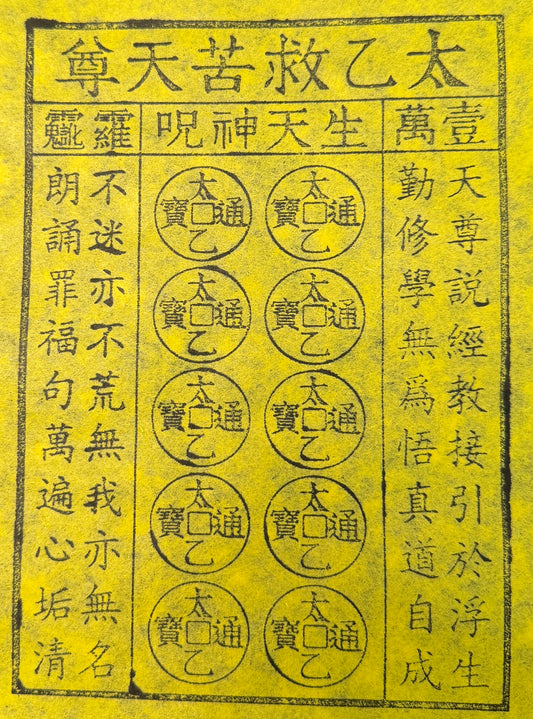 太乙救苦天尊
壹萬
天尊說經教接引於浮生
勤修學無爲悟真道自成
生天神呪
太乙通寶
太乙通寶
太乙通寶
太乙通寶
太乙通寶
太乙通寶
太乙通寶
太乙通寶
太乙通寶
太乙通寶
不迷亦不荒無我亦無名
朗誦罪福句萬遍心垢清